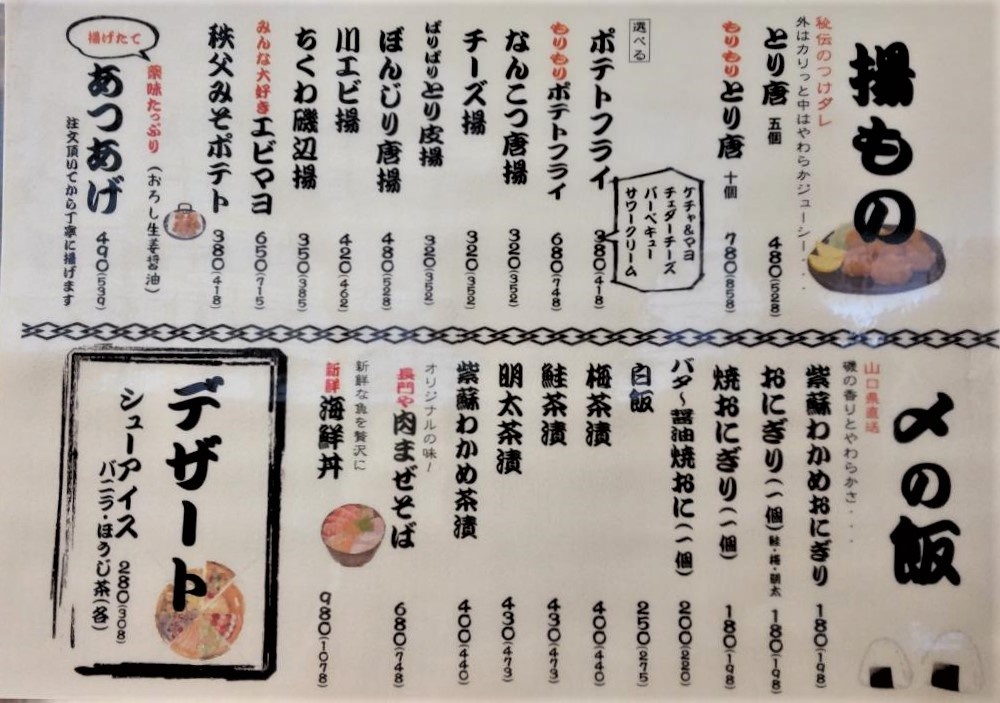 揚もの
秘伝のつけダレ
外はカリっと中はやわらかジューシー・・・
とり唐 五個 480(528)
もりもりとり唐 十個 780(858)
選べる
ポテトフライ 380(418)
ケチャ&マヨ
チェダーチーズ
バーベキュー
サワークリーム
もりもりポテトフライ 680(748)
なんこつ唐揚 320(352)
チーズ揚 320(352)
ぱりぱりとり皮揚 320(352)
ぼんじり唐揚 480(528)
川エビ揚 420(462)
ちくわ磯辺揚 350(385)
みんな大好きエビマヨ 650(715)
秩父みそポテト 380(418)
薬味たっぷり(おろし生姜醤油)
揚げたて
あつあげ 490(539)
注文頂いてから丁寧に揚げます
〆の飯
山口県直送
磯の香りとやわらかさ・・・
紫蘇わかめおにぎり 180(198)
おにぎり(一個)鮭・梅・明太 180(198)
焼おにぎり(一個) 180(198)
バタ〜醤油焼おに(一個) 200(220)
白飯 250(275)
梅茶漬 400(440)
鮭茶漬 430(473)
明太茶漬 430(473)
紫蘇わかめ茶漬 400(440)
オリジナルの味〜
長門や肉まぜそば 680(748)
新鮮な魚を贅沢に
新鮮海鮮丼 980(1078)
デザート
シューアイス 280(308)
バニラ・ほうじ茶(各)